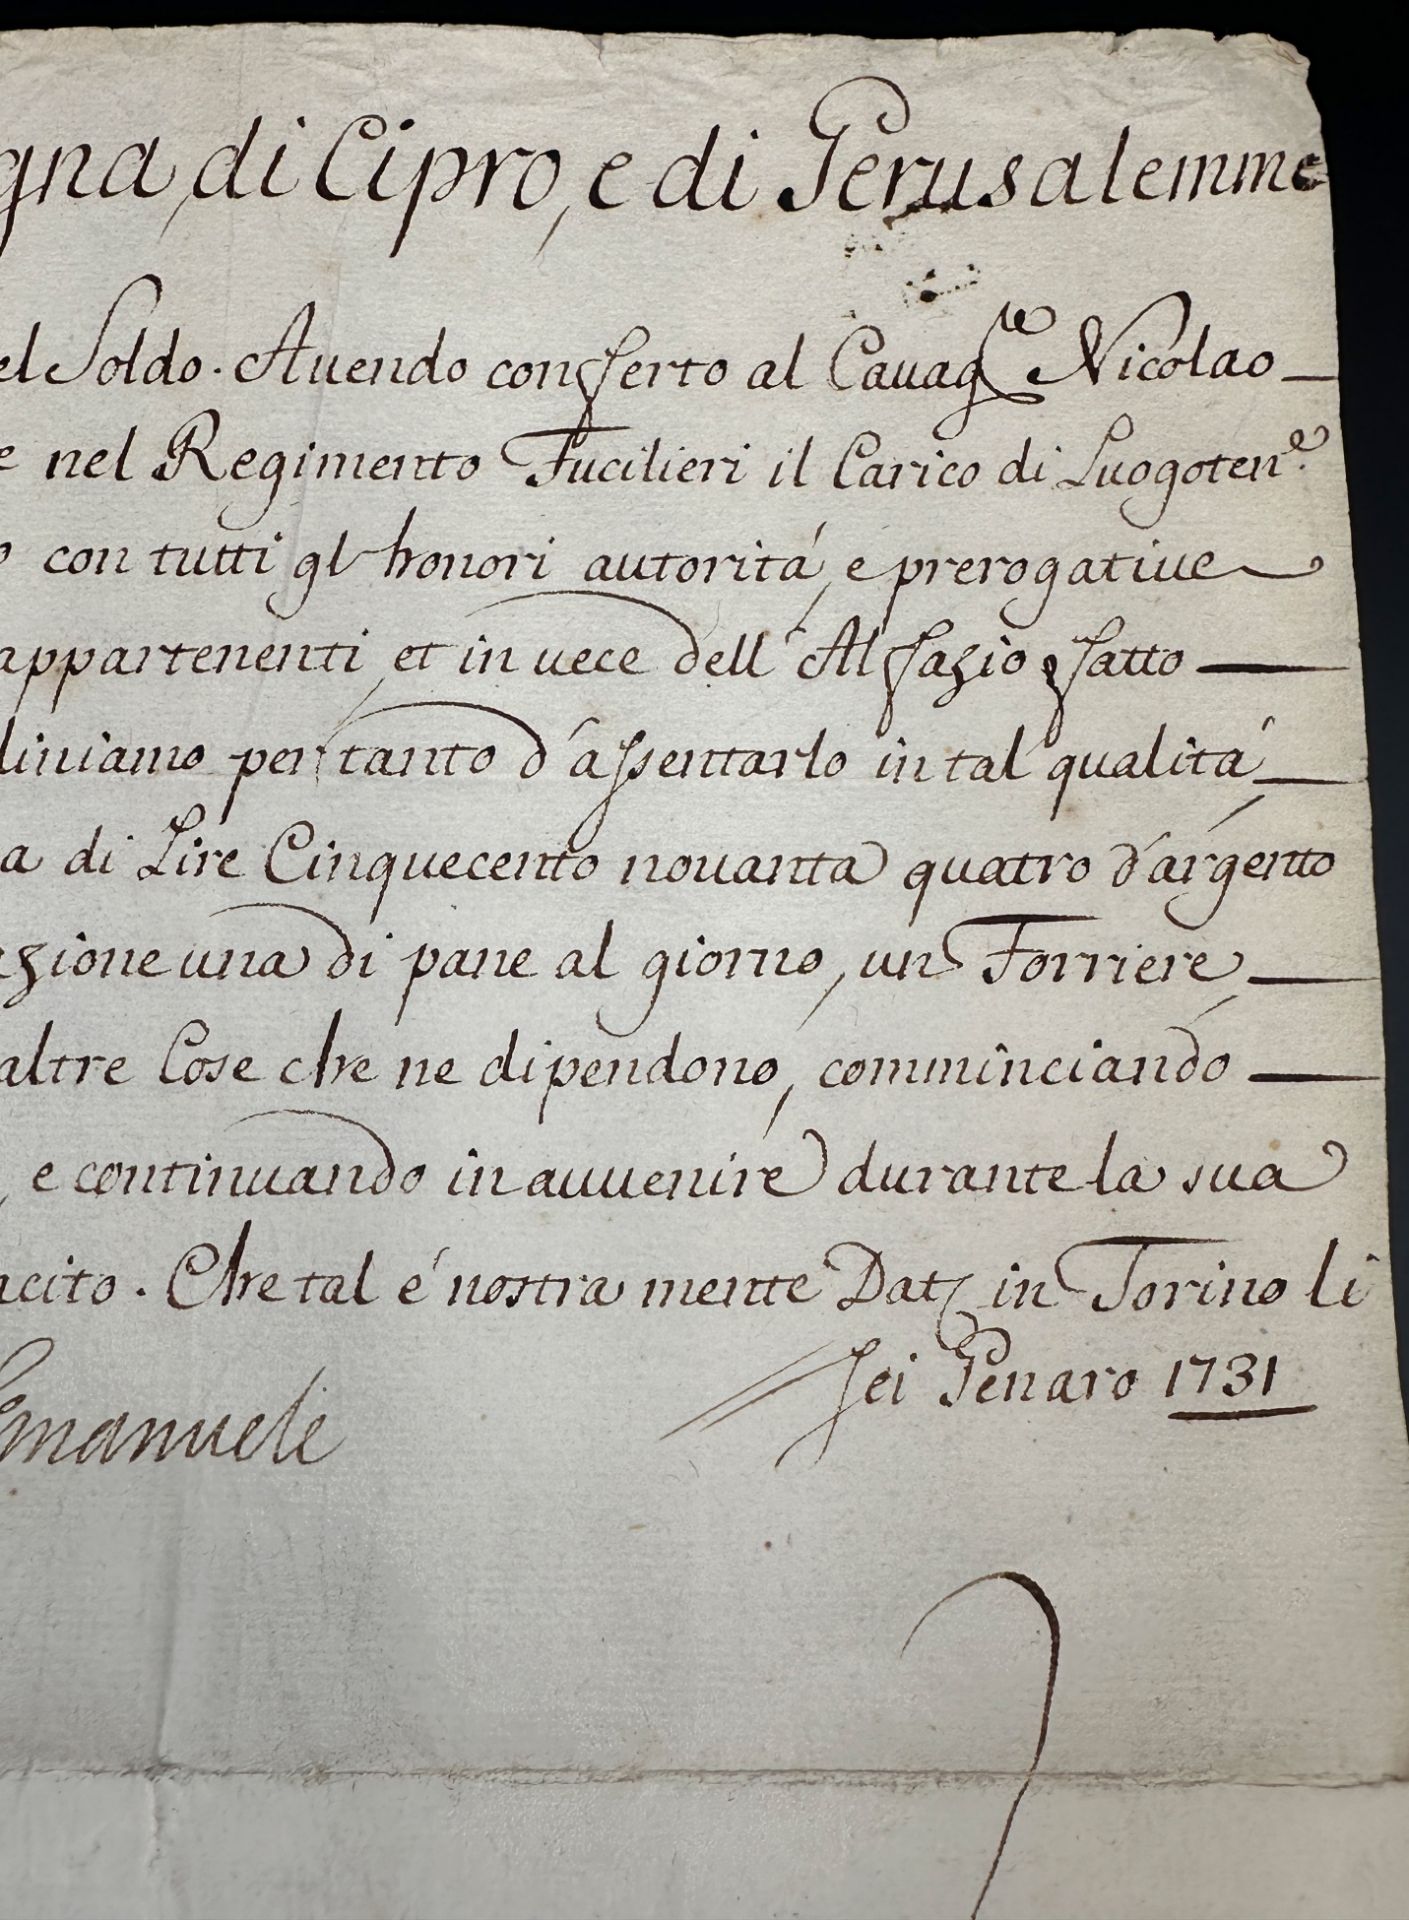 gna, di Cipro, e di Gerusalemme
el Soldo. Auendo conferto al Cauag.re Nicolao
e nel Regimento Fucilieri il Carico di Luogoten.e
o con tutti gl' honori autoritá, e prerogatiue
appartenenti, et in uece dell' Alfazio fatto
liniamo per tanto d'assentarlo in tal qualitá
a di Lire Cinquecento nouanta quatro d'argento
zione una di pane al giorno, un Forriere
altre Cose che ne dipendono, comminciando
, e continuando in auuenire durante la sua
acito. Che tal é nostra mente Dat. in Torino li
sei Genaro 1731
Emanuele